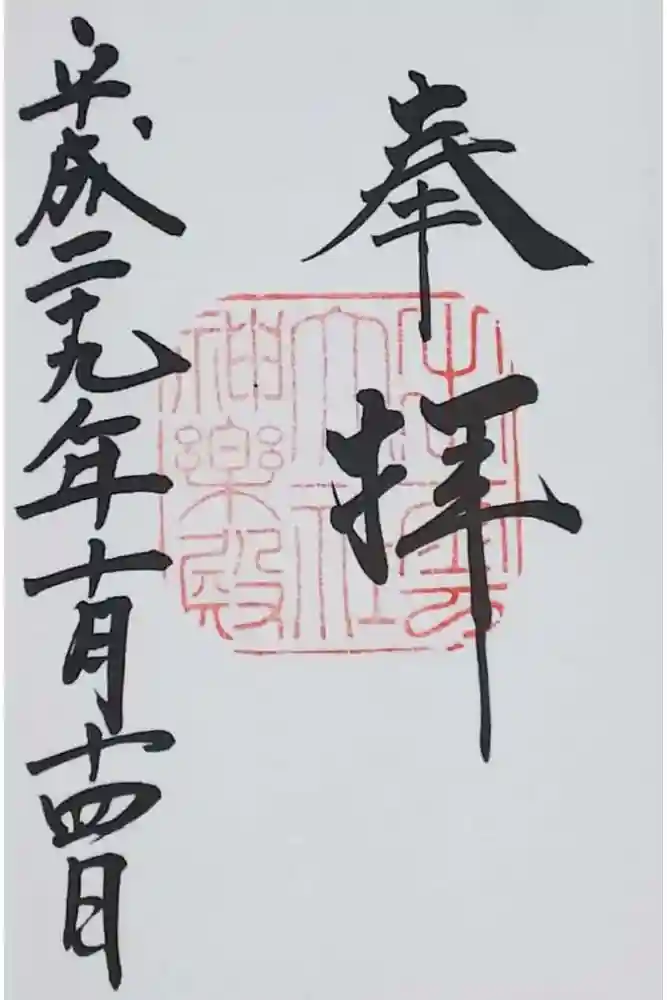 奉拝
出雲
大社
神楽殿
平成二十九年十月十四日